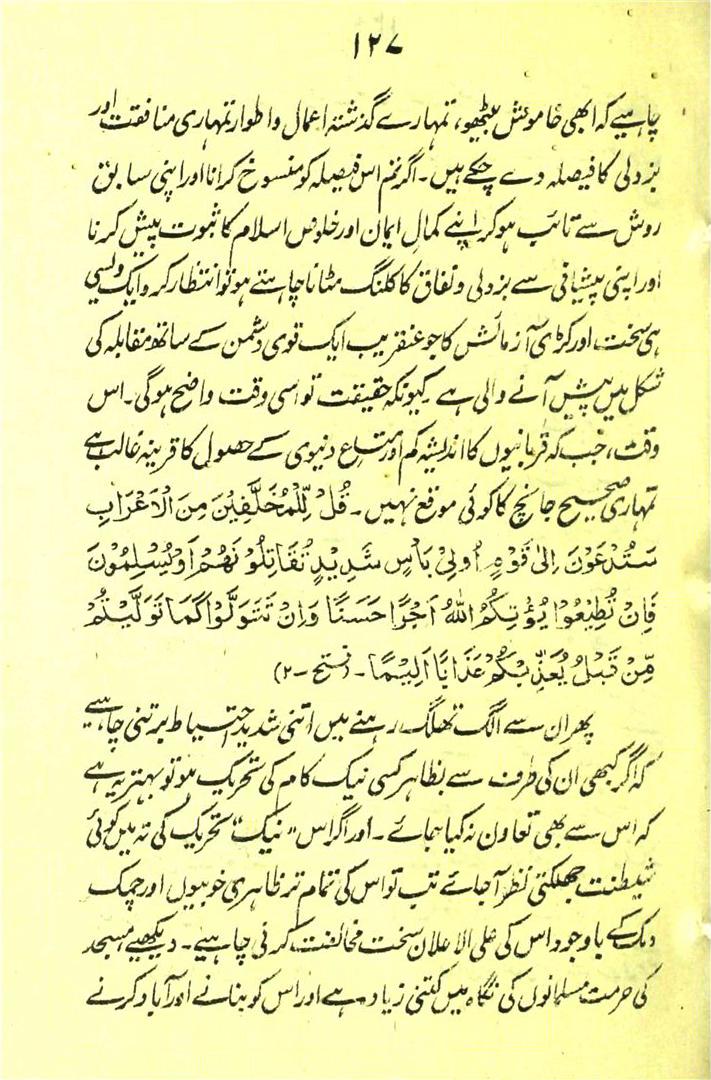 ۱۲۷
چاہیے کہ ابھی خاموش بیٹھو، تمہارے گذشتہ اعمال و اطوار تمہاری منافقت اور
بزدلی کا فیصلہ دے چکے ہیں۔ اگر تم اس فیصلہ کو منسوخ کرانا اور اپنی سابق
روش سے تائب ہو کر اپنے کمالِ ایمان اور خلوصِ اسلام کا ثبوت پیش کرنا
اور اپنی پیشانی سے بزدلی و نفاق کا کلنگ مٹانا چاہتے ہو تو انتظار کرو ایک ویسی
ہی سخت اور کڑی آزمائش کا جو عنقریب ایک قوی دشمن کے ساتھ مقابلہ کی
شکل میں پیش آنے والی ہے۔ کیونکہ حقیقت تو اسی وقت واضح ہوگی۔ اس
وقت، جب کہ قربانیوں کا اندیشہ کم اور متاع دنیوی کے حصول کا قرینہ غالب ہے
تمہاری صحیح جانچ کا کوئی موقع نہیں۔ قُلْ لِّلْمُخَلَّفِیْنَ مِنَ الْاَعْرَابِ
سَتُدْعَوْنَ اِلیٰ قَوْمٍ اُولِیْ بَاْسٍ شَدِیْدٍ تُقَاتِلُوْنَهُمْ اَوْ یُسْلِمُوْنَ
فَاِنْ تُطِیْعُوْا یُؤْتِکُمُ اللهُ اَجْرًا حَسَنًا وَاِنْ تَتَوَلَّوْا کَمَا تَوَلَّیْتُمْ
مِّنْ قَبْلُ یُعَذِّبْکُمْ عَذَابًا اَلِیْمًا۔ (فتح-۲)
پھر ان سے الگ تھلگ رہنے میں اتنی شدید احتیاط برتنی چاہیے
کہ اگر کبھی ان کی طرف سے بظاہر کسی نیک کام کی تحریک ہو تو بہتر یہ ہے
کہ اس سے بھی تعاون نہ کیا جائے۔ اور اگر اس "نیک" تحریک کی تہ میں کوئی
شیطنت جھلکتی نظر آجائے تب تو اس کی تمام تر ظاہری خوبیوں اور چمک
دمک کے باوجود اس کی علی الاعلان سخت مخالفت کرنی چاہیے۔ دیکھیے مسجد
کی حرمت مسلمانوں کی نگاہ میں کتنی زیادہ ہے اور اس کو بنانے اور آباد کرنے